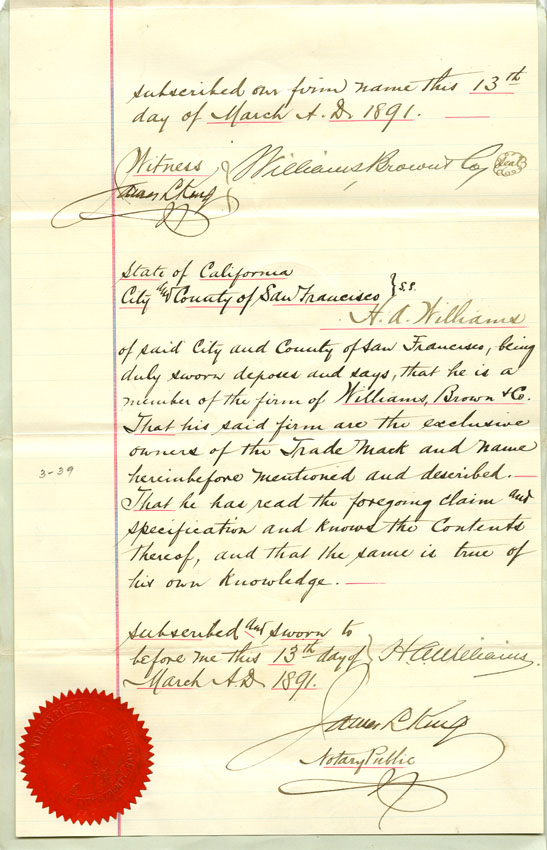 subscribed our firm name this 13th
day of March A.D. 1891.
Witness
Williams, Brown & Co
Seal
James L. King
State of California
City and County of San Francisco } S.S.
H. A. Williams
of said City and County of San Francisco, being
duly sworn deposes and says, that he is a
member of the firm of Williams, Brown & Co.
That his said firm are the exclusive
owners of the Trade Mark and name
hereinbefore mentioned and described.
That he has read the foregoing claim and
specification and knows the Contents
thereof, and that the same is true of
his own Knowledge.
3-39
subscribed and sworn to
before me this 13th day of
March A.D. 1891.
H A Williams
James L. King
Notary Public